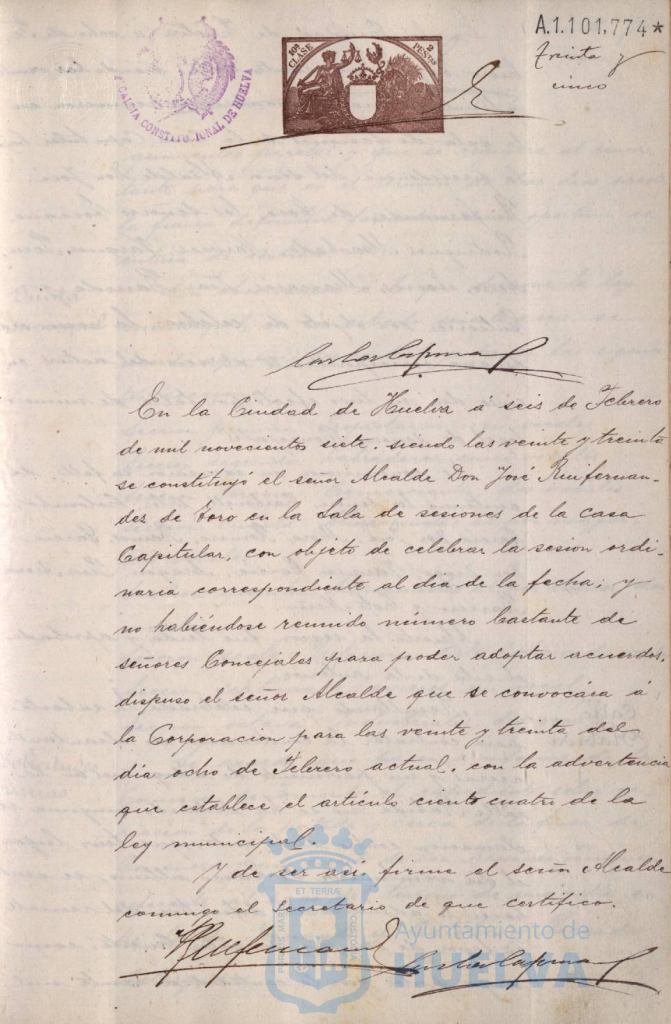 A.1.101,774*
treinta y
cinco
ALCALDIA CONSTITUCIONAL DE HUELVA
10ª CLASE 2 PESTAS
En la Ciudad de Huelva á seis de Febrero
de mil novecientos siete, siendo las veinte y treinta
se constituyó el señor Alcalde Don José Ruifernan-
dez de Toro en la Sala de sesiones de la casa
Capitular, con objeto de celebrar la sesion ordi-
naria correspondiente al dia de la fecha; y
no habiéndose reunido número bastante de
señores Concejales para poder adoptar acuerdos,
dispuso el señor Alcalde que se convocára á
la Corporacion para las veinte y treinta del
dia ocho de Febrero actual, con la advertencia
que establece el artículo ciento cuatro de la
ley municipal.
Y de ser así, firma el señor Alcalde
conmigo el Secretario de que certifico.
Ayuntamiento de
HUELVA